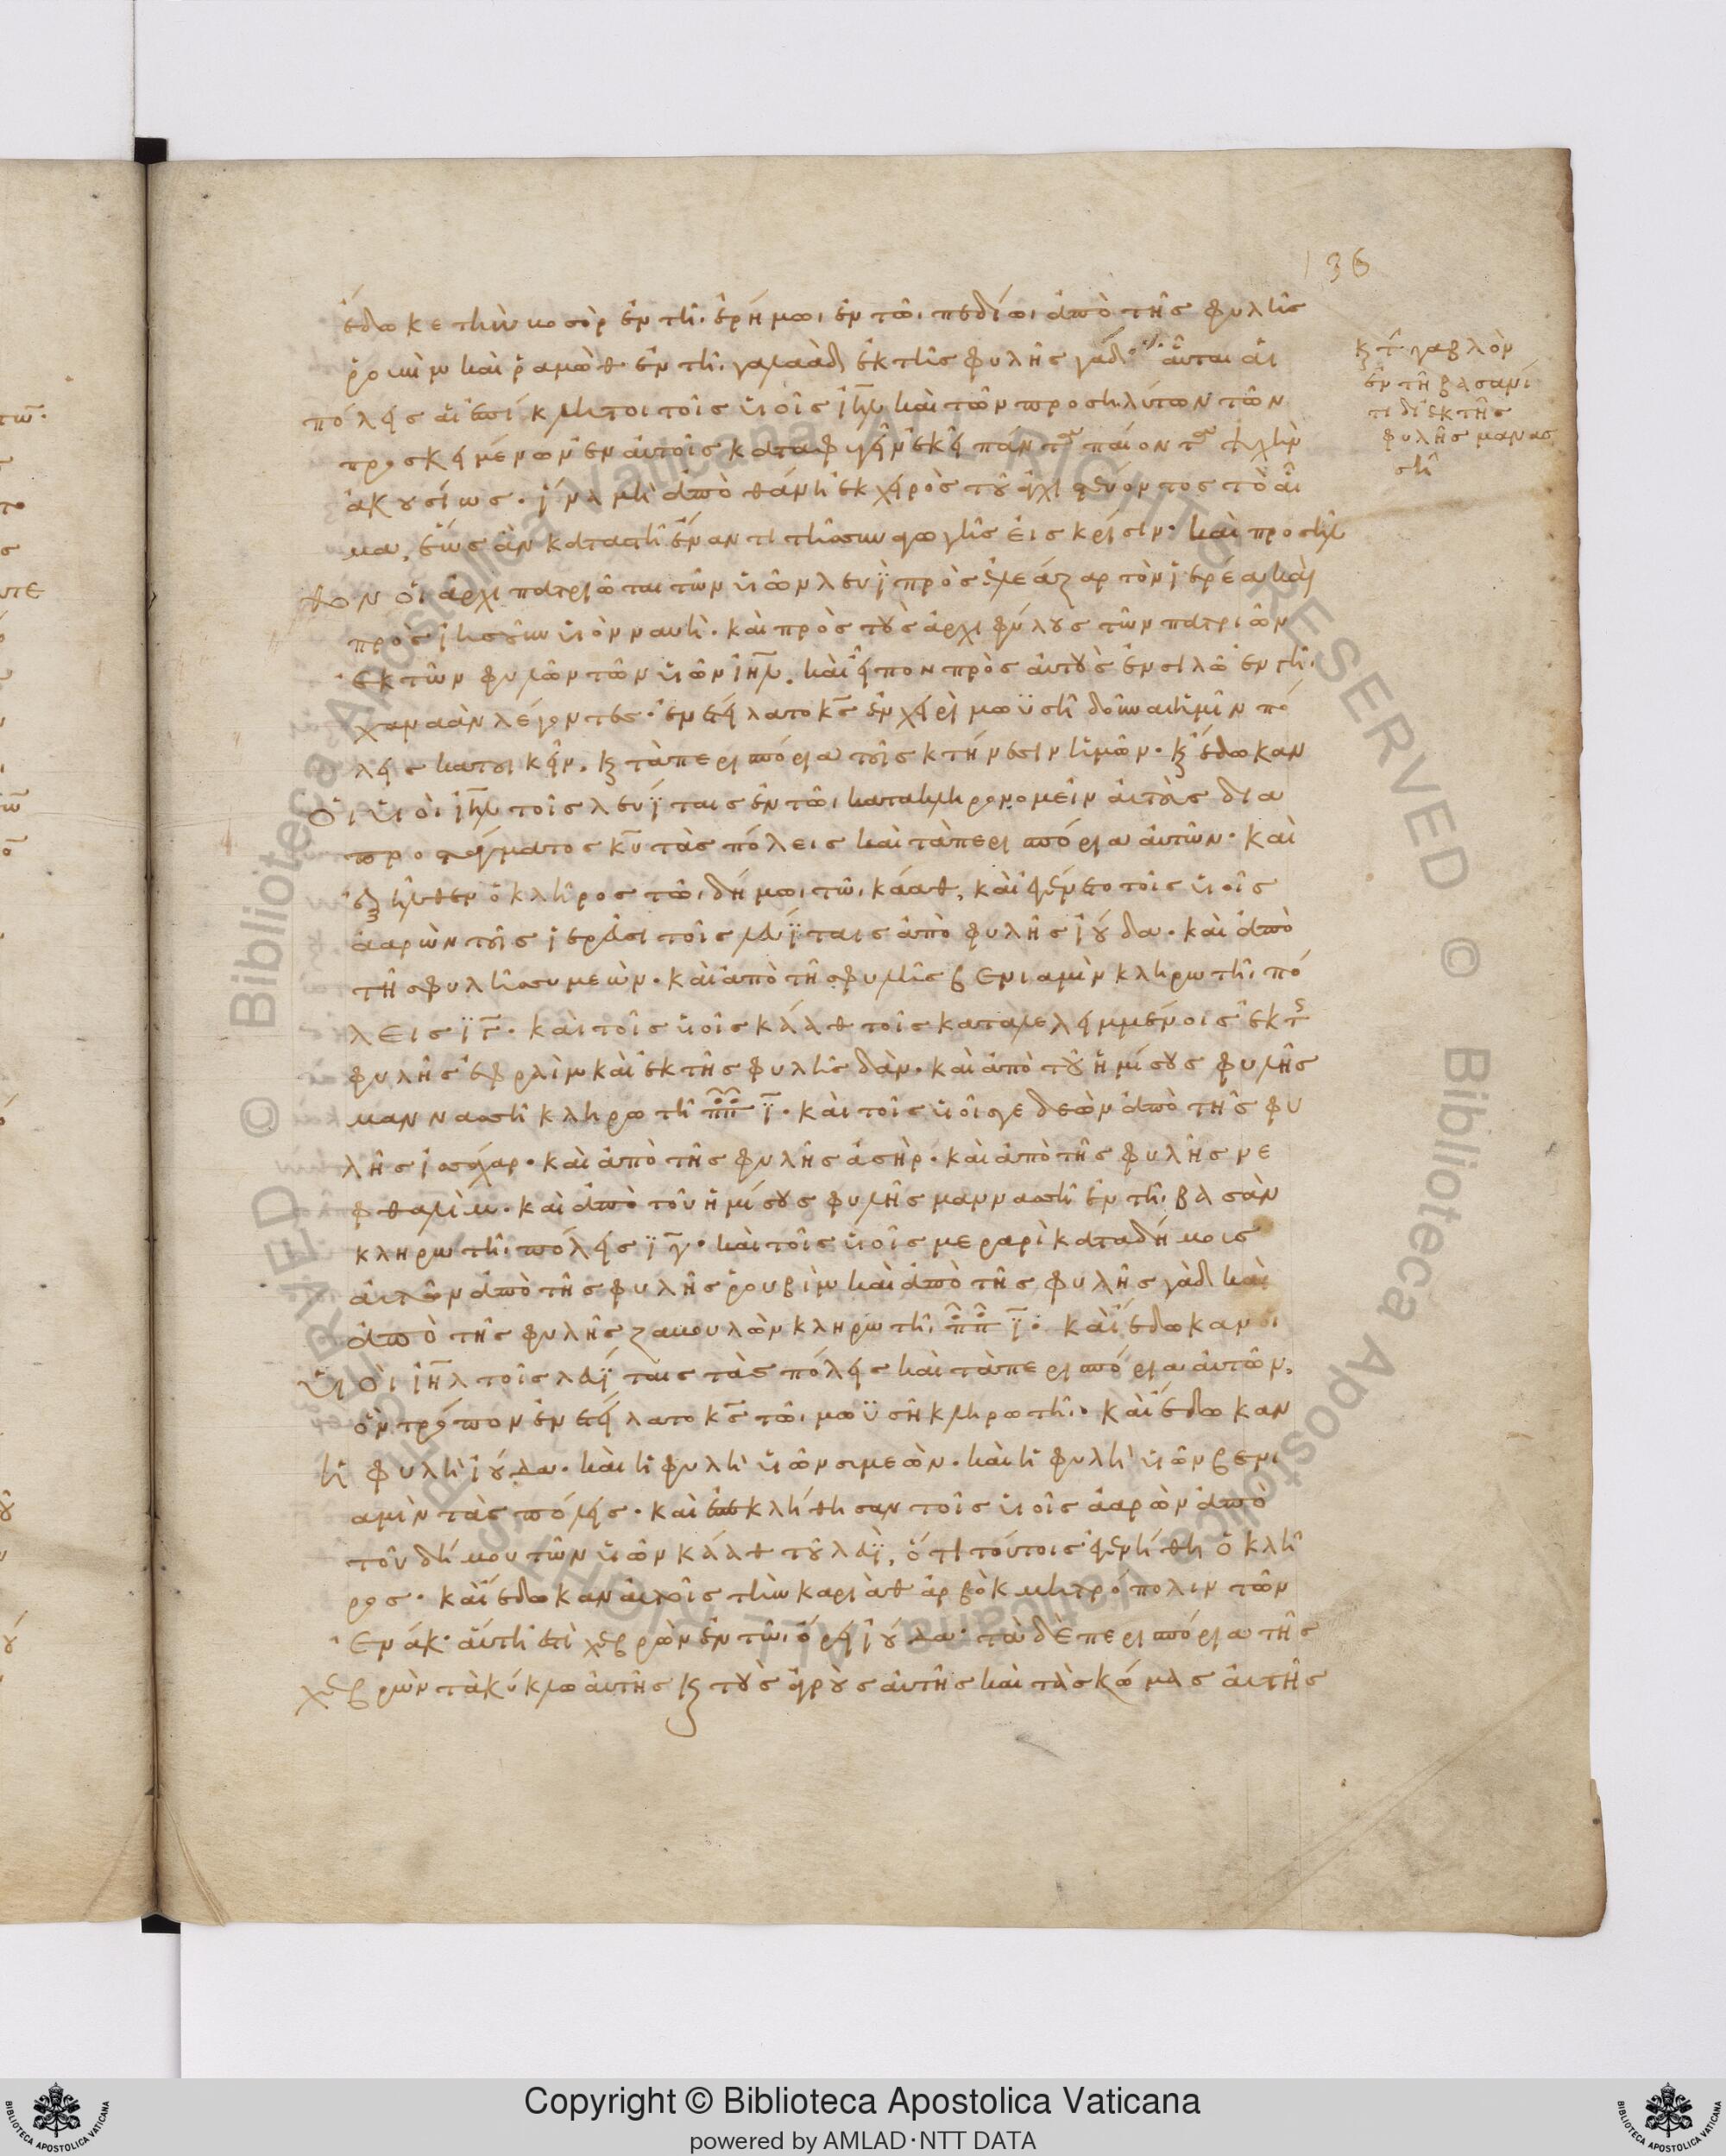 136
ἔδωκε τὴν βοσὸρ ἐν τῆι ἐρήμωι ἐν τῶι πεδίωι ἀπὸ τῆς φυλῆς
ῥουβὴν καὶ ῥαμὼθ ἐν τῆι γαλαὰδ ἐκ τῆς φυλῆς γάδ· αὗται αἱ
πόλεις αἱ ἐπίκλητοι τοῖς υἱοῖς ἰηλ καὶ τῶν προσηλύτων τῶν
προσκειμένων ἐν αὐτοῖς καταφυγεῖν ἐκεῖ παντὶ παίοντι ψυχὴν
ἀκουσίως· ἵνα μὴ ἀποθάνῃ ἐκ χειρὸς τοῦ ἀγχιστεύοντος τὸ αἷ
μα, ἕως ἂν καταστῆ ἔναντι τῆς συναγωγῆς εἰς κρίσιν· καὶ προσῆλ
θον οἱ ἀρχιπατριῶται τῶν υἱῶν λευῒ πρὸς ἐλεάζαρ τὸν ἱερέα καὶ
πρὸς ἰησοῦν υἱὸν ναυὴ· καὶ πρὸς τοὺς ἀρχιφύλους τῶν πατριῶν
ἐκ τῶν φυλῶν τῶν υἱῶν ἰηλ. καὶ εἶπον πρὸς αὐτοὺς ἐν σιλῶ ἐν τῆι
χαναὰν λέγοντες· ἐνετείλατο κς ἐν χειρὶ μωϋσῆ δοῦναι ἡμῖν πό
λεις κατοικεῖν. καὶ τὰ περισπόρια τοῖς κτήνεσιν ἡμῶν· καὶ ἔδωκαν
οἱ υἱοὶ ἰηλ τοῖς λευΐταις ἐν τῶι κατακληρονομεῖν αὐτοὺς δια
προστάγματος κυ τὰς πόλεις καὶ τὰ περισπόρια αὐτῶν· καὶ
ἐξῆλθεν ὁ κλῆρος τῶι δήμωι τῶι κάαθ, καὶ ἐγένετο τοῖς υἱοῖς
ἀαρὼν τοῖς ἱερεῦσι τοῖς λευΐταις ἀπὸ φυλῆς ἰούδα· καὶ ἀπὸ
τῆς φυλῆς συμεὼν· καὶ ἀπὸ τῆς φυλῆς βενιαμὶν κληρωτῆι πό
λεις ϊγ· καὶ τοῖς υἱοῖς κάαθ τοῖς καταλελειμμένοις ἐκ τς
φυλῆς ἐφραὶμ καὶ ἐκ τῆς φυλῆς δὰν· καὶ ἀπὸ τοῦ ἡμίσους φυλῆς
μαννασσῆ κληρωτῆ ππ ϊ· καὶ τοῖς υἱοῖς γεδεὼν ἀπὸ τῆς φυ
λῆς ἰσσάχαρ· καὶ ἀπὸ τῆς φυλῆς ἀσὴρ· καὶ ἀπὸ τῆς φυλῆς νε
φθαλὶμ· καὶ ἀπὸ τοῦ ἡμίσους φυλῆς μαννασσῆ ἐν τῆι βασὰν
κληρωτῆι πόλεις ϊγ· καὶ τοῖς υἱοῖς μεραρὶ κατὰ δήμους
αὐτῶν ἀπὸ τῆς φυλῆς ῥουβὶν καὶ ἀπὸ τῆς φυλῆς γὰδ καὶ
ἀπὸ τῆς φυλῆς ζαβουλὼν κληρωτῆι ππ ϊ· καὶ ἔδωκαν οἱ
υἱοὶ ἰηλ τοῖς λευΐταις τὰς πόλεις καὶ τὰ περισπόρια αὐτῶν,
ὃν τρόπον ἐνετείλατο κς τῶι μωϋσῆ κληρωτῆι· καὶ ἔδωκαν
ἡ φυλὴ ἰούδα· καὶ ἡ φυλὴ υἱῶν συμεὼν· καὶ ἡ φυλὴ υἱῶν βενι
αμὶν τὰς πόλεις· καὶ ἐπεκλήθησαν τοῖς υἱοῖς ἀαρὼν ἀπὸ
τοῦ δήμου τῶν υἱῶν κάαθ τοῦ λευῒ, ὅτι τούτοις ἐγενήθη ὁ κλῆ
ρος· καὶ ἔδωκαν αὐτοῖς τὴν καριὰθ ἀρβὸκ μητρόπολιν τῶν
ἐνάκ· αὕτη ἐστὶ χεβρὼν ἐν τῶι ὄρει ἰούδα· τὰ δὲ περισπόρια τῆς
χεβρὼν τὰ κύκλω αὐτῆς καὶ τοὺς ἀγροὺς αὐτῆς καὶ τὰς κώμας αὐτῆς
καὶ τ γαβλὸν
ἐν τῆ βασανί
τιδι ἐκ τῆς
φυλῆς μανας
σῆ
Copyright © Biblioteca Apostolica Vaticana
powered by AMLAD·NTT DATA